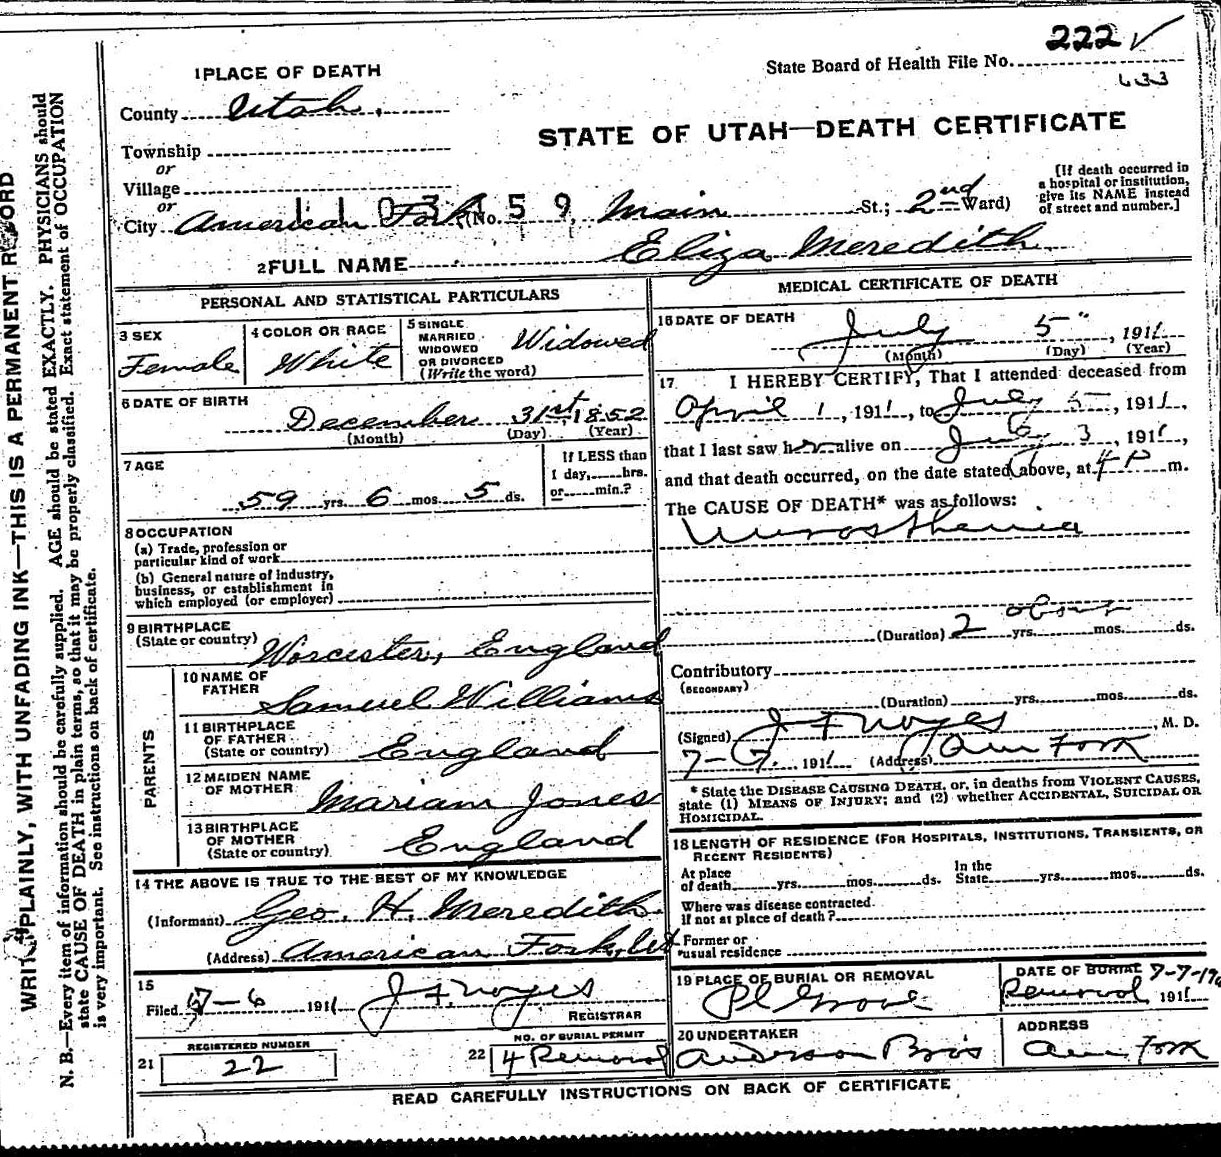 222 ✓
State Board of Health File No.
633
1 PLACE OF DEATH
County Utah.
STATE OF UTAH—DEATH CERTIFICATE
Township
or
Village
or
City American Fork (No. Main St.; 2nd Ward)
[If death occurred in
a hospital or institution,
give its NAME instead
of street and number.]
2 FULL NAME Eliza Meredith
PERSONAL AND STATISTICAL PARTICULARS
3 SEX
Female
4 COLOR OR RACE
White
5 SINGLE
MARRIED
WIDOWED
OR DIVORCED
(Write the word)
Widowed
6 DATE OF BIRTH
December 31st, 1852
(Month) (Day) (Year)
7 AGE
59 yrs. 6 mos. 5 ds.
If LESS than
1 day, hrs.
or min.?
8 OCCUPATION
(a) Trade, profession or
particular kind of work
(b) General nature of industry,
business, or establishment in
which employed (or employer)
9 BIRTHPLACE
(State or country)
Worcester, England
PARENTS
10 NAME OF
FATHER
Samuel Williams
11 BIRTHPLACE
OF FATHER
(State or country)
England
12 MAIDEN NAME
OF MOTHER
Mariam Jones
13 BIRTHPLACE
OF MOTHER
(State or country)
England
14 THE ABOVE IS TRUE TO THE BEST OF MY KNOWLEDGE
(Informant) Geo. H. Meredith
(Address) American Fork, Ut
15
Filed 7-6 1911 J F Noyes
REGISTRAR
21
REGISTERED NUMBER
22
22
NO. OF BURIAL PERMIT
4 Removal
MEDICAL CERTIFICATE OF DEATH
16 DATE OF DEATH
July 5", 1911
(Month) (Day) (Year)
17 I HEREBY CERTIFY, That I attended deceased from
April 1, 1911, to July 5, 1911,
that I last saw her alive on July 3, 1911,
and that death occurred, on the date stated above, at 4 P m.
The CAUSE OF DEATH* was as follows:
Nurosthenia
about
(Duration) 2 yrs. mos. ds.
Contributory
(SECONDARY)
(Duration) yrs. mos. ds.
(Signed) J F Noyes, M. D.
7-7. 1911 (Address) Am Fork
* State the DISEASE CAUSING DEATH, or, in deaths from VIOLENT CAUSES,
state (1) MEANS OF INJURY; and (2) whether ACCIDENTAL, SUICIDAL OR
HOMICIDAL.
18 LENGTH OF RESIDENCE (FOR HOSPITALS, INSTITUTIONS, TRANSIENTS, OR
RECENT RESIDENTS)
At place
of death yrs. mos. ds.
In the
State yrs. mos. ds.
Where was disease contracted
if not at place of death?
Former or
usual residence
19 PLACE OF BURIAL OR REMOVAL
Pl Grove
DATE OF BURIAL 7-7-19
Removal 1911
20 UNDERTAKER
Anderson Bros
ADDRESS
Am Fork
READ CAREFULLY INSTRUCTIONS ON BACK OF CERTIFICATE
WRITE PLAINLY, WITH UNFADING INK—THIS IS A PERMANENT RECORD
N. B.—Every item of information should be carefully supplied. AGE should be stated EXACTLY. PHYSICIANS should
state CAUSE OF DEATH in plain terms, so that it may be properly classified. Exact statement of OCCUPATION
is very important. See instructions on back of certificate.